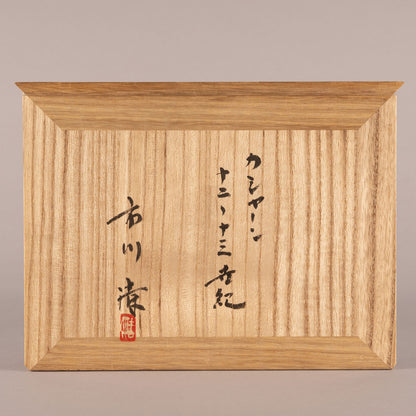 カシャーン
十二〜十三世紀
市川 清